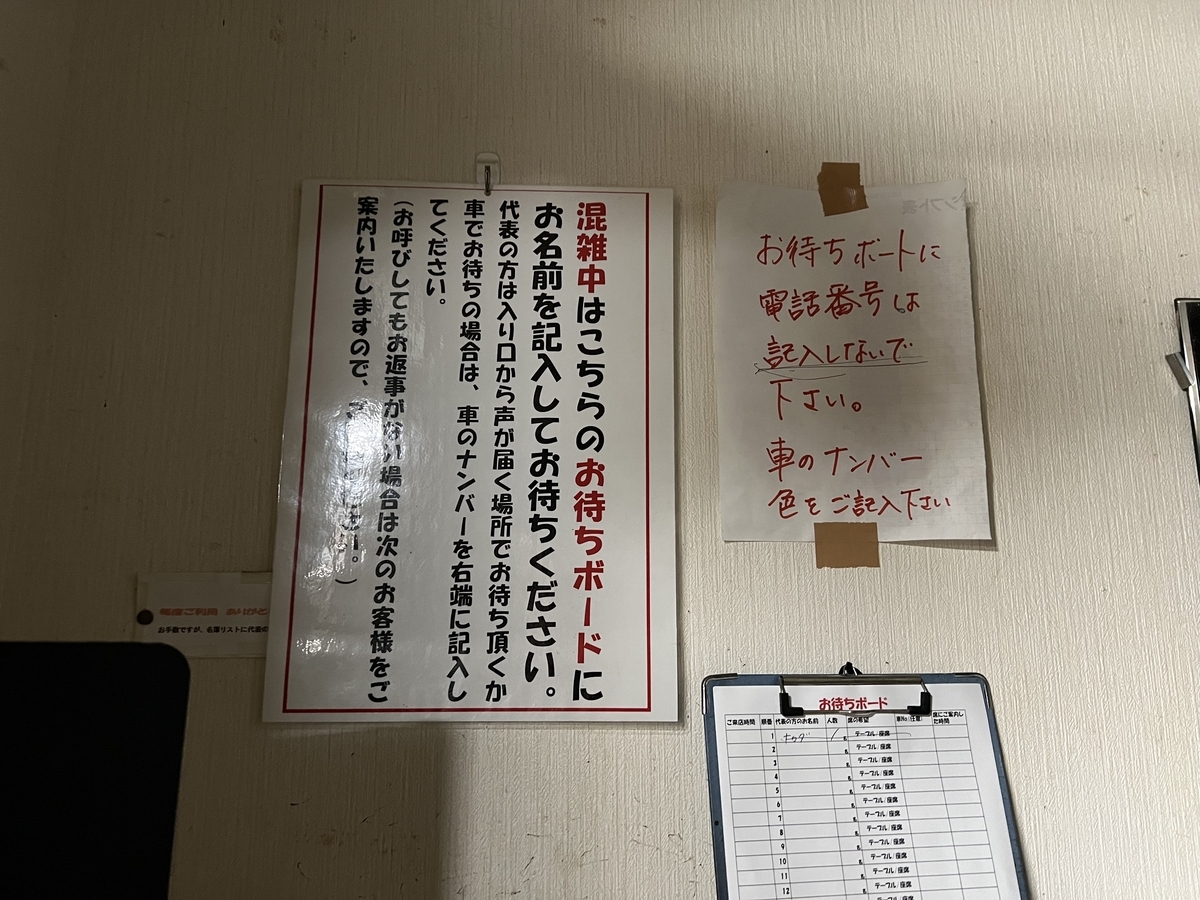 混雑中はこちらのお待ちボードに
お名前を記入してお待ちください。
代表の方は入り口から声が届く場所でお待ち頂くか
車でお待ちの場合は、車のナンバーを右端に記入し
てください。
(お呼びしてもお返事がない場合は次のお客様をご
案内いたしますので、
シフト表
お待ちボートに
電話番号は
記入しないで
下さい。
車のナンバー
色をご記入下さい
毎度ご利用 ありがと
お手数ですが、名簿リストに代表の
お待ちボード
ご来店時間 順番 代表の方のお名前 人数 席の希望 車No(任意) 席にご案内した時間
1 名 テーブル/座席
2 名 テーブル/座席
3 名 テーブル/座席
4 名 テーブル/座席
5 名 テーブル/座席
6 名 テーブル/座席
7 名 テーブル/座席
8 名 テーブル/座席
9 名 テーブル/座席
10 名 テーブル/座席
11 名 テーブル/座席
12 名 テーブル/座席